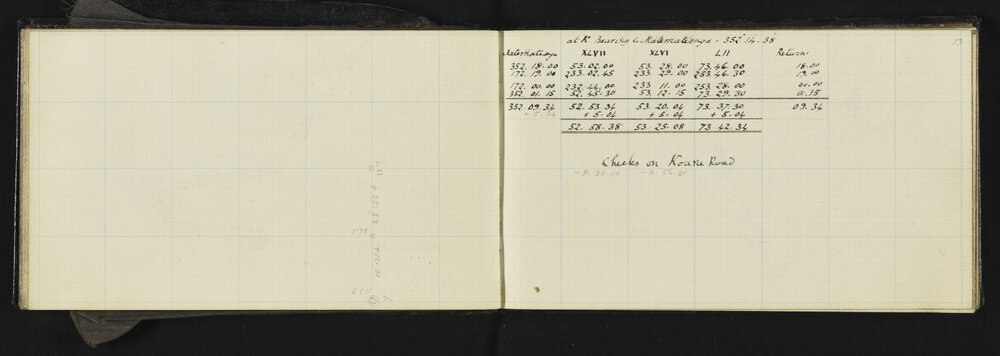 13
at K Bearing to Matematéonga. 352°14'.38
Matematéonga XLVII XLVI LII Return
352. 18. 00 53. 02. 00 53. 28. 00 73. 46. 00 18. 00
172. 19. 00 233. 02. 45 233. 29. 00 253. 46. 30 19. 00
172. 00. 00 232. 44. 00 233. 11. 00 253. 28. 00 00. 00
352. 01. 15 52. 45. 30 53. 12. 15 73. 29. 30 01. 15
352. 09. 34 52. 53. 34 53. 20. 04 73. 37. 30 09. 34
+ 5. 04 + 5. 04 + 5. 04 + 5. 04
52. 58. 38 53. 25. 08 73. 42. 34
Checks on Koane Road